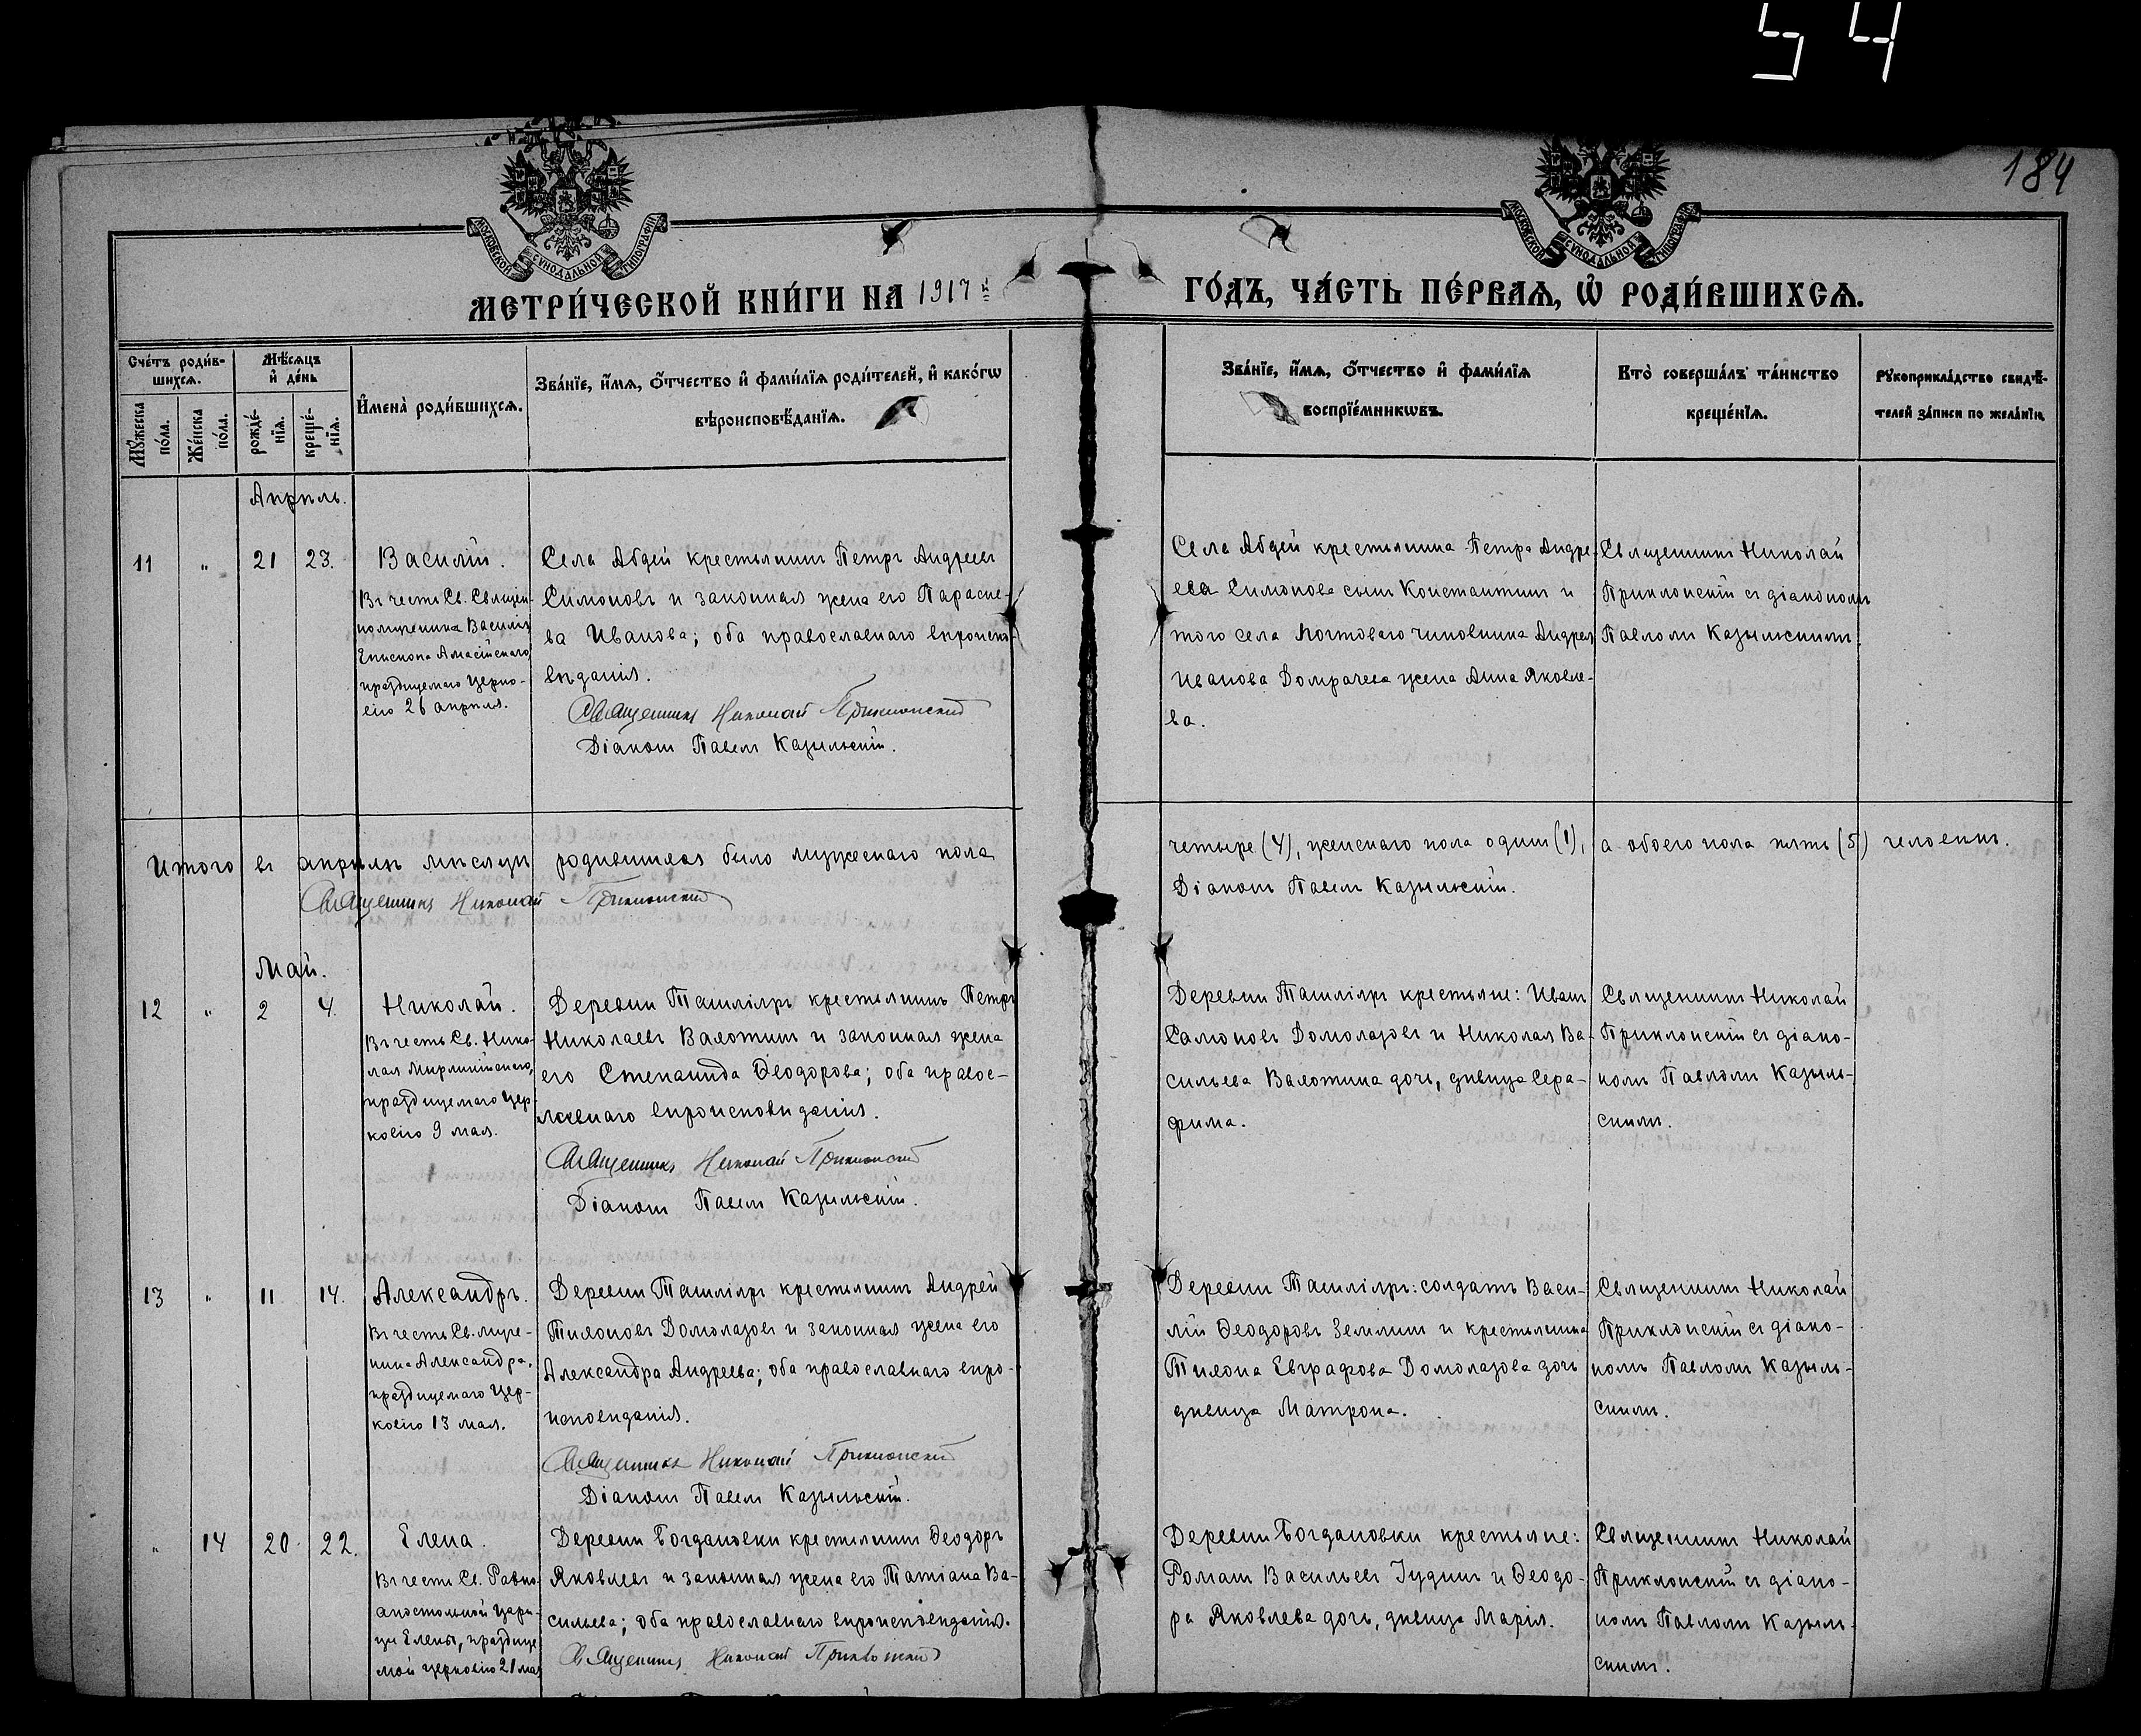 54
184
МОСКОВСКОЙ СѴНОДАЛЬНОЙ ТИПОГРАФІИ
МОСКОВСКОЙ СѴНОДАЛЬНОЙ ТИПОГРАФІИ
МЕТРИ́ЧЕСКОЙ КНИ́ГИ НА 1917 й
ГО́ДЪ, ЧА́СТЬ ПЕ́РВАѦ, Ѡ҆ РОДИ́ВШИХСѦ.
Сче́тъ роди́в-
шихсѧ.
Мѣ́сѧцъ
и҆ де́нь
Мꙋ́жеска
по́ла.
Же́нска
по́ла.
рожде́-
нїѧ.
креще́-
нїѧ.
И҆мена̀ роди́вшихсѧ.
Зва́нїе, и҆́мѧ, ѻ҆́тчество и҆ фами́лїѧ роди́телей, и҆ како́гѡ
вѣроисповѣ́данїѧ.
Зва́нїе, и҆́мѧ, ѻ҆́тчество и҆ фами́лїѧ
воспрїе́мникѡвъ.
Кто̀ соверша́лъ та́инство
креще́нїѧ.
Рꙋкоприкла́дство свидѣ́-
телей за́писи по жела́нїю.
Апрѣль.
11 " 21 23.
Василій.
Въ честь Св. Священ-
номученика Василія
Епископа Амасійскаго,
празднуемаго Церко-
вію 26 апрѣля.
Села Абдей крестьянинъ Петръ Андреевъ
Симоновъ и законная жена его Параске-
ва Иванова; оба православнаго вѣроиспо-
вѣданія.
Священникъ Николай Приклонскій
Діаконъ Павелъ Казыльскій.
Села Абдей крестьянина Петра Андре-
ева Симонова сынъ Константинъ и
того села почтоваго чиновника Андрея
Иванова Домрачева жена Анна Яковле-
ва.
Священникъ Николай
Приклонскій съ діакономъ
Павломъ Казыльскимъ.
Итого въ апрѣлѣ мѣсяцѣ родившихся было мужескаго пола
четыре (4), женскаго пола одинъ (1), а обоего пола пять (5) человѣкъ.
Священникъ Николай Приклонскій
Діаконъ Павелъ Казыльскій.
Май.
12 " 2 4.
Николай.
Въ честь Св. Нико-
лая Мирликійскаго,
празднуемаго Цер-
ковію 9 мая.
Деревни Ташліяръ крестьянинъ Петръ
Николаевъ Вахотинъ и законная жена
его Степанида Ѳеодорова; оба правос-
лавнаго вѣроисповѣданія.
Священникъ Николай Приклонскій
Діаконъ Павелъ Казыльскій.
Деревни Ташліяръ крестьяне: Иванъ
Самоновъ Домолазовъ и Николая Ва-
сильева Вахотина дочь, дѣвица Сера-
фима.
Священникъ Николай
Приклонскій съ діако-
номъ Павломъ Казыль-
скимъ.
13 " 11 14.
Александръ.
Въ честь Св. муче-
ника Александра,
празднуемаго Цер-
ковію 13 мая.
Деревни Ташліяръ крестьянинъ Андрей
Тихоновъ Домолазовъ и законная жена его
Александра Андреева; оба православнаго вѣро-
исповѣданія.
Священникъ Николай Приклонскій
Діаконъ Павелъ Казыльскій.
Деревни Ташліяръ: солдатъ Васи-
лій Ѳеодоровъ Землинъ и крестьянина
Тихона Евграфова Домолазова дочь
дѣвица Матрона.
Священникъ Николай
Приклонскій съ діако-
номъ Павломъ Казыль-
скимъ.
" 14 20 22.
Елена.
Въ честь Св. Равно-
апостольной Цари-
цы Елены, праздную-
мой Церковію 21 мая
Деревни Богдановки крестьянинъ Ѳеодоръ
Яковлевъ и законная жена его Татіана Ва-
сильева; оба православнаго вѣроисповѣданія.
Священникъ Николай Приклонскій
Деревни Богдановки крестьяне:
Романъ Васильевъ Іудинъ и Ѳеодо-
ра Яковлева дочь, дѣвица Марія.
Священникъ Николай
Приклонскій съ діако-
номъ Павломъ Казыль-
скимъ.